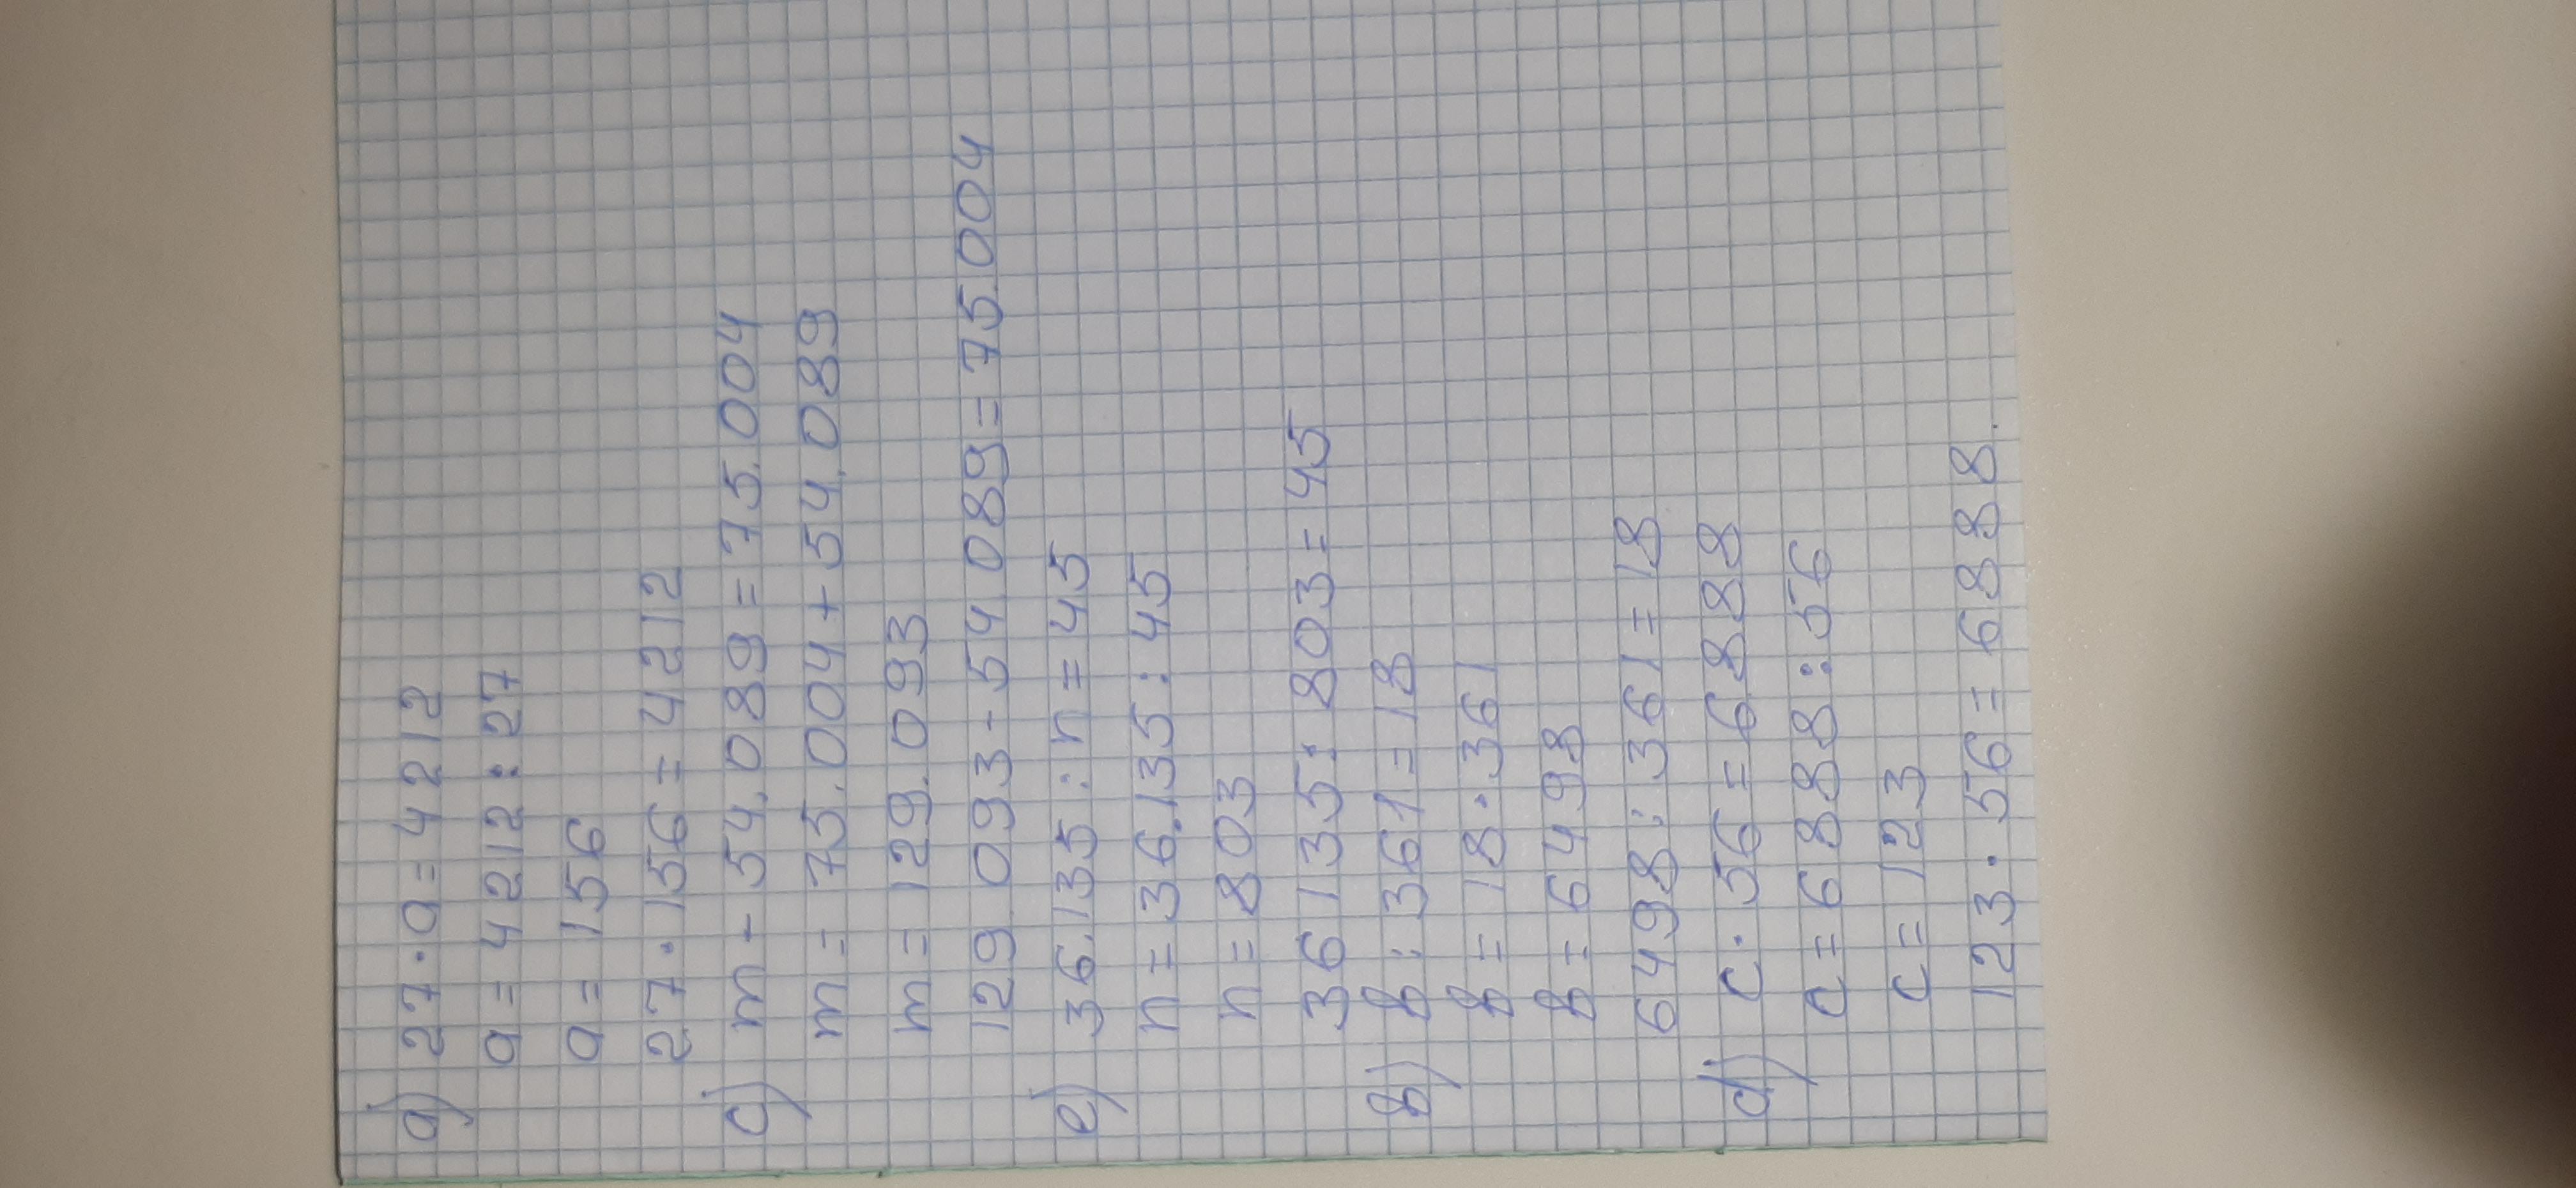 a) 27 · a = 4212
a = 4212 : 27
a = 156
27 · 156 = 4212
c) m - 54.089 = 75.004
m = 75.004 + 54.089
m = 129.093
129 093 - 54 089 = 75.004
e) 36.135 : n = 45
n = 36.135 : 45
n = 803
36 135 : 803 = 45
b) b : 361 = 18
b = 18 · 361
b = 6498
6498 : 361 = 18
d) c · 56 = 6888
c = 6888 : 56
c = 123
123 · 56 = 6888.